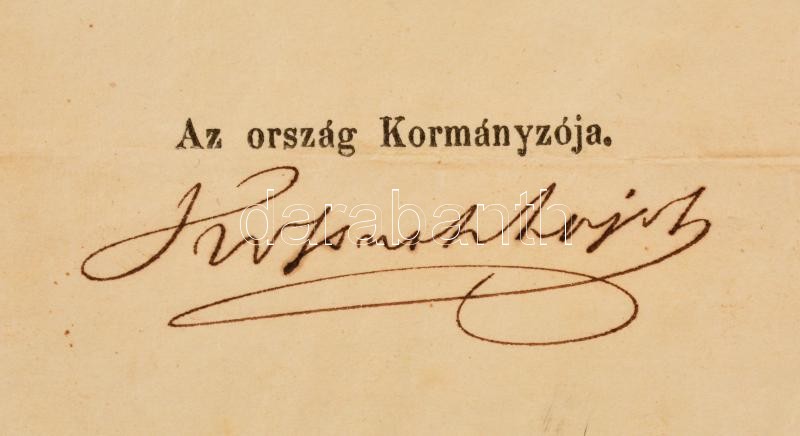 Az ország Kormányzója.
Kossuth Lajos
darabanth